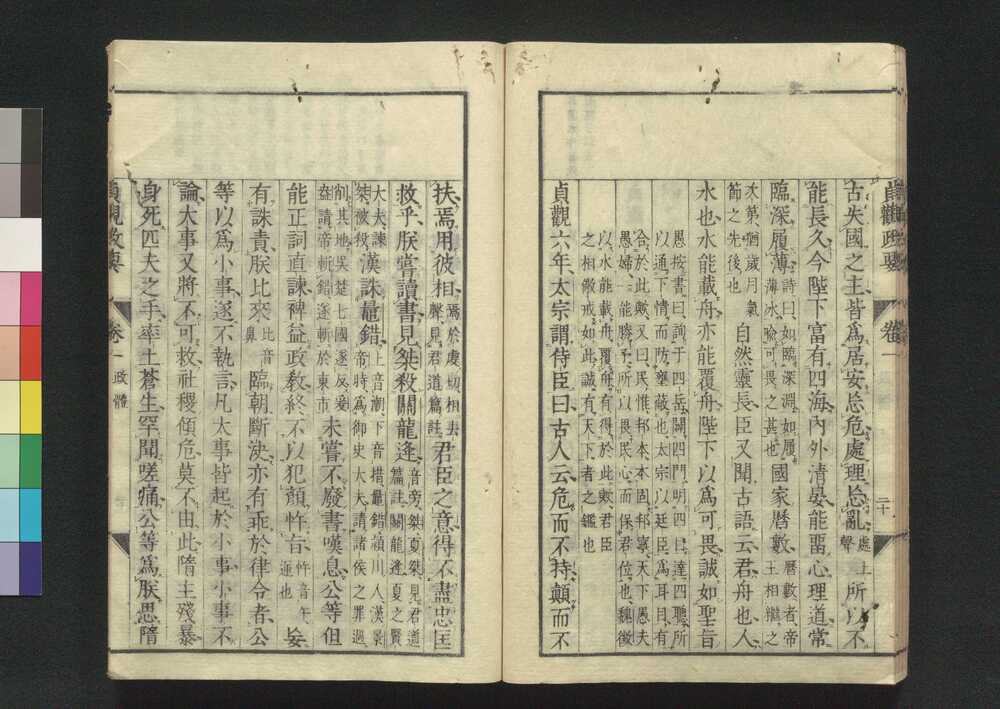 貞觀政要 卷一 二十
古失國之主皆爲居安忘危處理忘亂處上聲所以不
能長久今陛下富有四海內外清晏能留心理道常
臨深履薄詩曰如臨深淵如履薄冰險可畏之甚也國家曆數曆數者帝王相繼之
次第猶歲月氣節之先後也自然靈長臣又聞古語云君舟也人
水也水能載舟亦能覆舟陛下以爲可畏誠如聖旨
愚按書曰詢于四岳闢四門明四目達四聰所
以通下情而防壅蔽也太宗以廷臣爲耳目有
合於此歟又曰民惟邦本本固邦寧天下愚夫
愚婦一能勝予所以畏民心而保君位也魏徵
以水能載舟覆舟有得於此歟君臣
之相儆戒如此誠有天下者之鑑也
貞觀六年太宗謂侍臣曰古人云危而不持顛而不
扶焉用彼相焉於虔切相去聲見君道篇註君臣之意得不盡忠匡
救乎朕嘗讀書見桀殺關龍逄音旁桀夏桀見君道篇註關龍逄夏之賢
大夫諫桀被殺漢誅鼂錯上音潮下音措鼂錯潁川人漢景帝時爲御史大夫請諸侯之罪過
削其地吳楚七國遂反爰盎請帝斬錯遂斬於東市未嘗不廢書嘆息公等但
能正詞直諫裨益政教終不以犯顏忤旨忤音午逆也妄
有誅責朕比來比音鼻臨朝斷決亦有乖於律令者公
等以爲小事遂不執言凡大事皆起於小事小事不
論大事又將不可救社稷傾危莫不由此隋主殘暴
身死匹夫之手率土蒼生罕聞嗟痛公等爲朕思隋
貞觀政要 卷一 政體